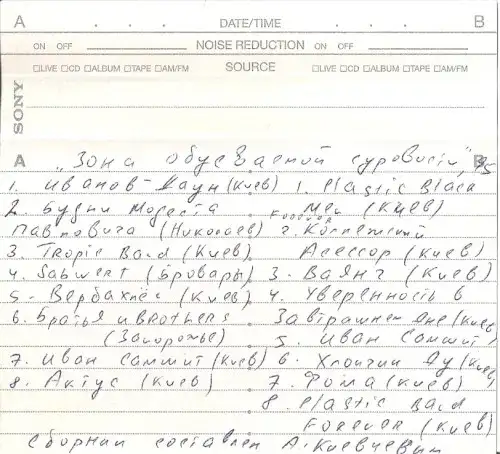 A . . . DATE/TIME . . . B
ON OFF NOISE REDUCTION ON OFF
□LIVE □CD □ALBUM □TAPE □AM/FM SOURCE □LIVE □CD □ALBUM □TAPE □AM/FM
SONY
A B
"Зона суровости", 95
1. Иванов-Даун (Киев)
2. Будни Модеста
Павловича (Николаев)
3. Tropic Band (Киев)
4. Sabwert (Бровары)
5. (Киев)
6. Братья и Brothers
(Запорожье)
7. Иван Саммит (Киев)
8. Актус (Киев)
1. Plastic Black
Мен (Киев)
Forever
2. Коллежский
Асессор (Киев)
3. Ваянг (Киев)
4. Уверенность в
Завтрашнем Дне (Киев)
5. Иван Саммит
6. Хлопчик Ду (Киев)
7. Фома (Киев)
8. Plastic Band
Forever (Киев)
Сборник составлен А. Киевчевим